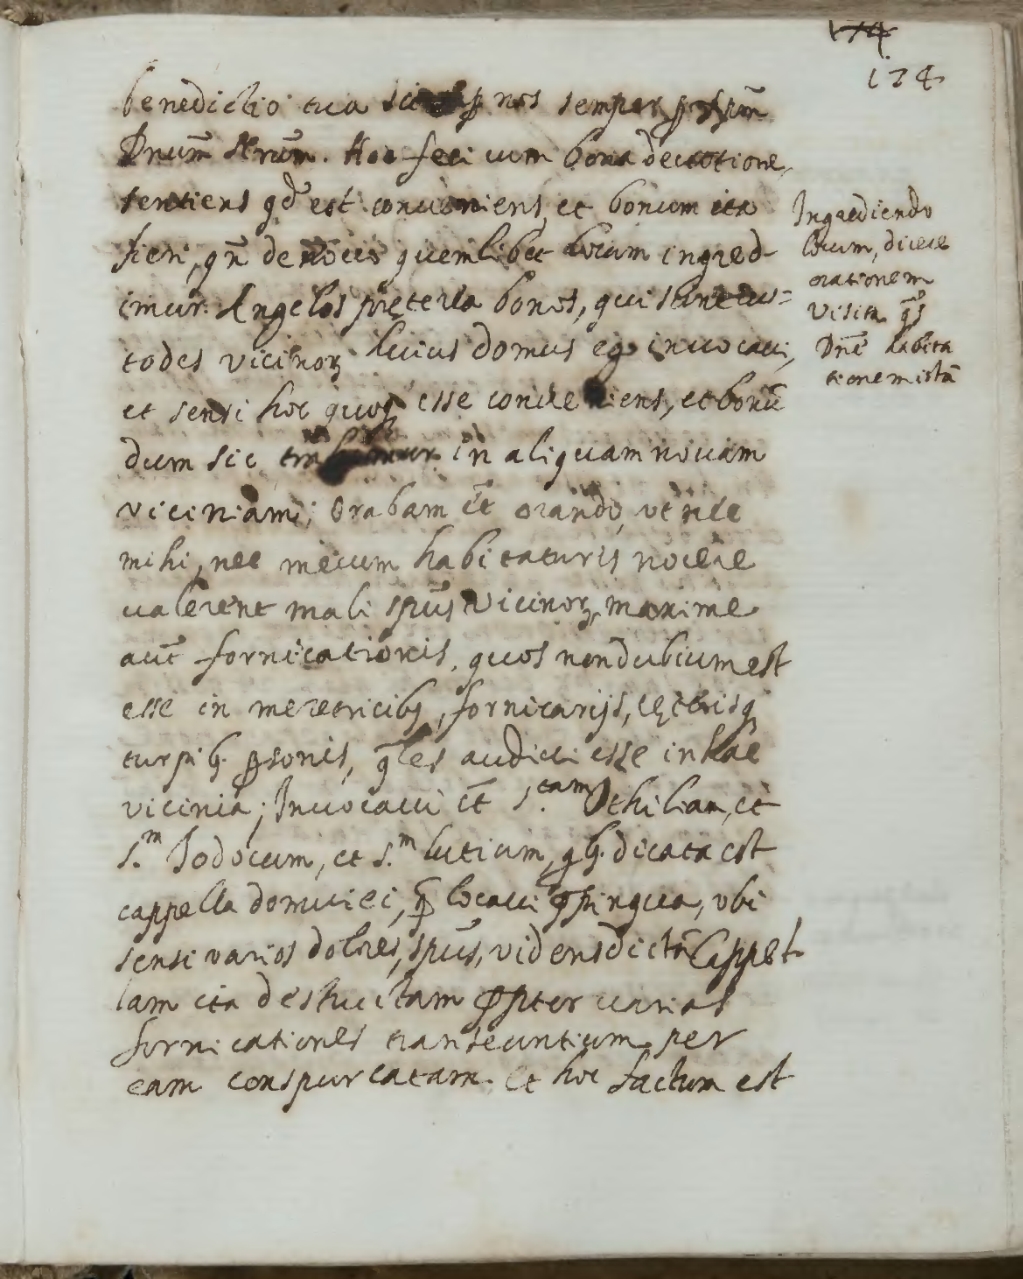 174
174
benedictio tua sit sup nos semper p Xpm̄
Dnum̄ nrum̄. Hoc feci cum bona deuotione,
sentiens qd̄ est conueniens, et bonum ita
fieri, qn̄ de nouo quemlibet locum ingred-
imur. Angelos pręterea bonos, qui sunt cus=
todes vicinoꝝ huius domus ego inuocaui,
et sensi hoc quoqꝫ esse conueniens, et bonū
dum sic in aliquam nouam
viciniam; Orabam et̄ orando, vt nec
mihi, nec mecum habitaturis nocere
ualerent mali spūs vicinoꝝ, maxime
aut̄ fornicationis, quos non dubium est
esse in meretricibꝫ, fornicarijs, cęterisqꝫ
turpibꝫ ꝑsonis, q̄les audiui esse in hac
vicinia; Inuocaui et̄ S.tam Othiliam, et
S.m Jodocum, et S.m Lutium, qbꝫ. dicata est
cappella domui ei, q̄ locaui ꝓpinqua, vbi
sensi varios dolores, spūs, videns dictā Cappel-
lam ita destructam ꝓpter varias
fornicationes transeuntium per
eam conspurcatam. Et hoc factum est
Ingrediendo
locum, dicere
orationem
Visita qs̄
Dnē habita
tionem istā